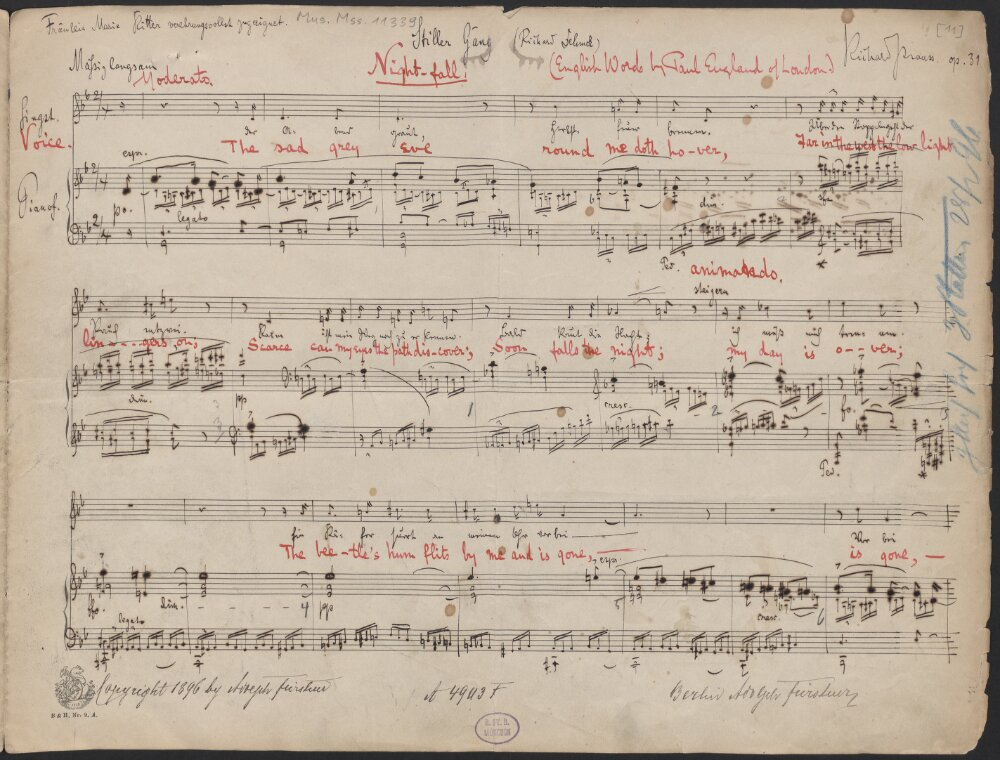 Fräulein Marie Ritter verehrungsvollst zugeeignet. Mus. Mss. 11339
[11]
Stiller Gang (Richard Dehmel)
Richard Strauss op. 31
Mäßig langsam
Moderato.
Night-fall.
(English Words by Paul England of London.)
Singst.
Voice.
der Abend graut,
The sad grey Eve round me doth ho-ver, Far in the west the low light
espr.
Pianof.
po.
legato
dim.
Ped.
animando.
steigern
Rauch entzwei. Kaum ist mein Weg noch zu erkennen. Bald kommt die Nacht; ich muß mich trennen.
lin---gers on; Scarce can my eyes the path dis-cover; Soon falls the night; my day is o--ver;
dim.
pp
1
cresc.
2
fo.
3
Ped.
Ein Käfer surrt an meinem Ohr vorbei
Vorbei
The bee-tle's hum flits by me and is gone,—
is gone,—
espr.
ffo.
dim.
4
pp
5
cresc.
6
7
legato
Copyright 1896 by Adolph Fürstner
A 4903 F
Berlin Adolph Fürstner
B & H. Nr. 9. A.
B. ST. B.
MÜNCHEN